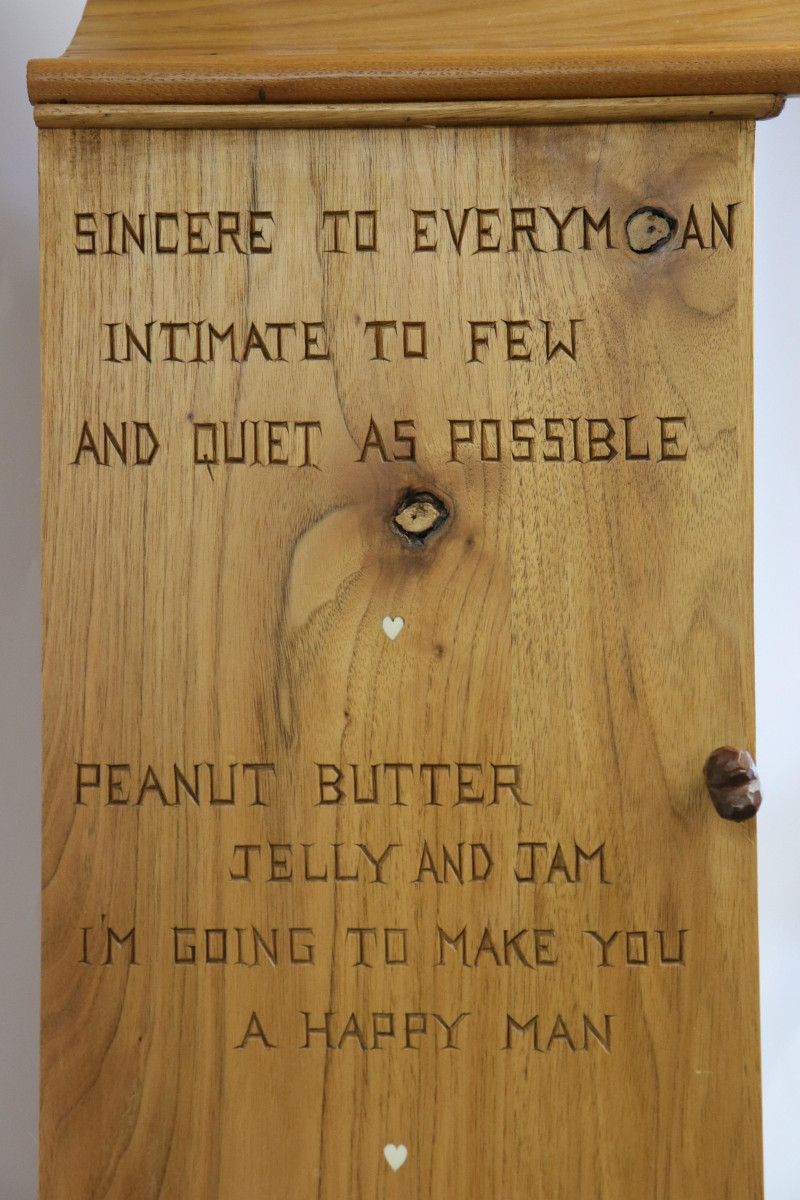 SINCERE TO EVERYMAN
INTIMATE TO FEW
AND QUIET AS POSSIBLE
PEANUT BUTTER
JELLY AND JAM
I'M GOING TO MAKE YOU
A HAPPY MAN